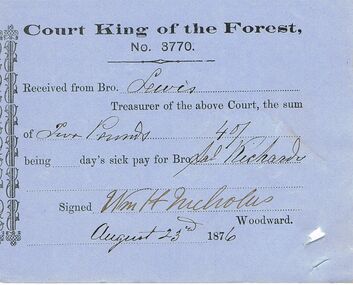 Court King of the Forest,
No. 3770.
Received from Bro. Lewis
Treasurer of the above Court, the sum
of Two Pounds 40/
being day's sick pay for Bro Richards
Signed Wm H Nicholas
Woodward.
August 23rd 1876